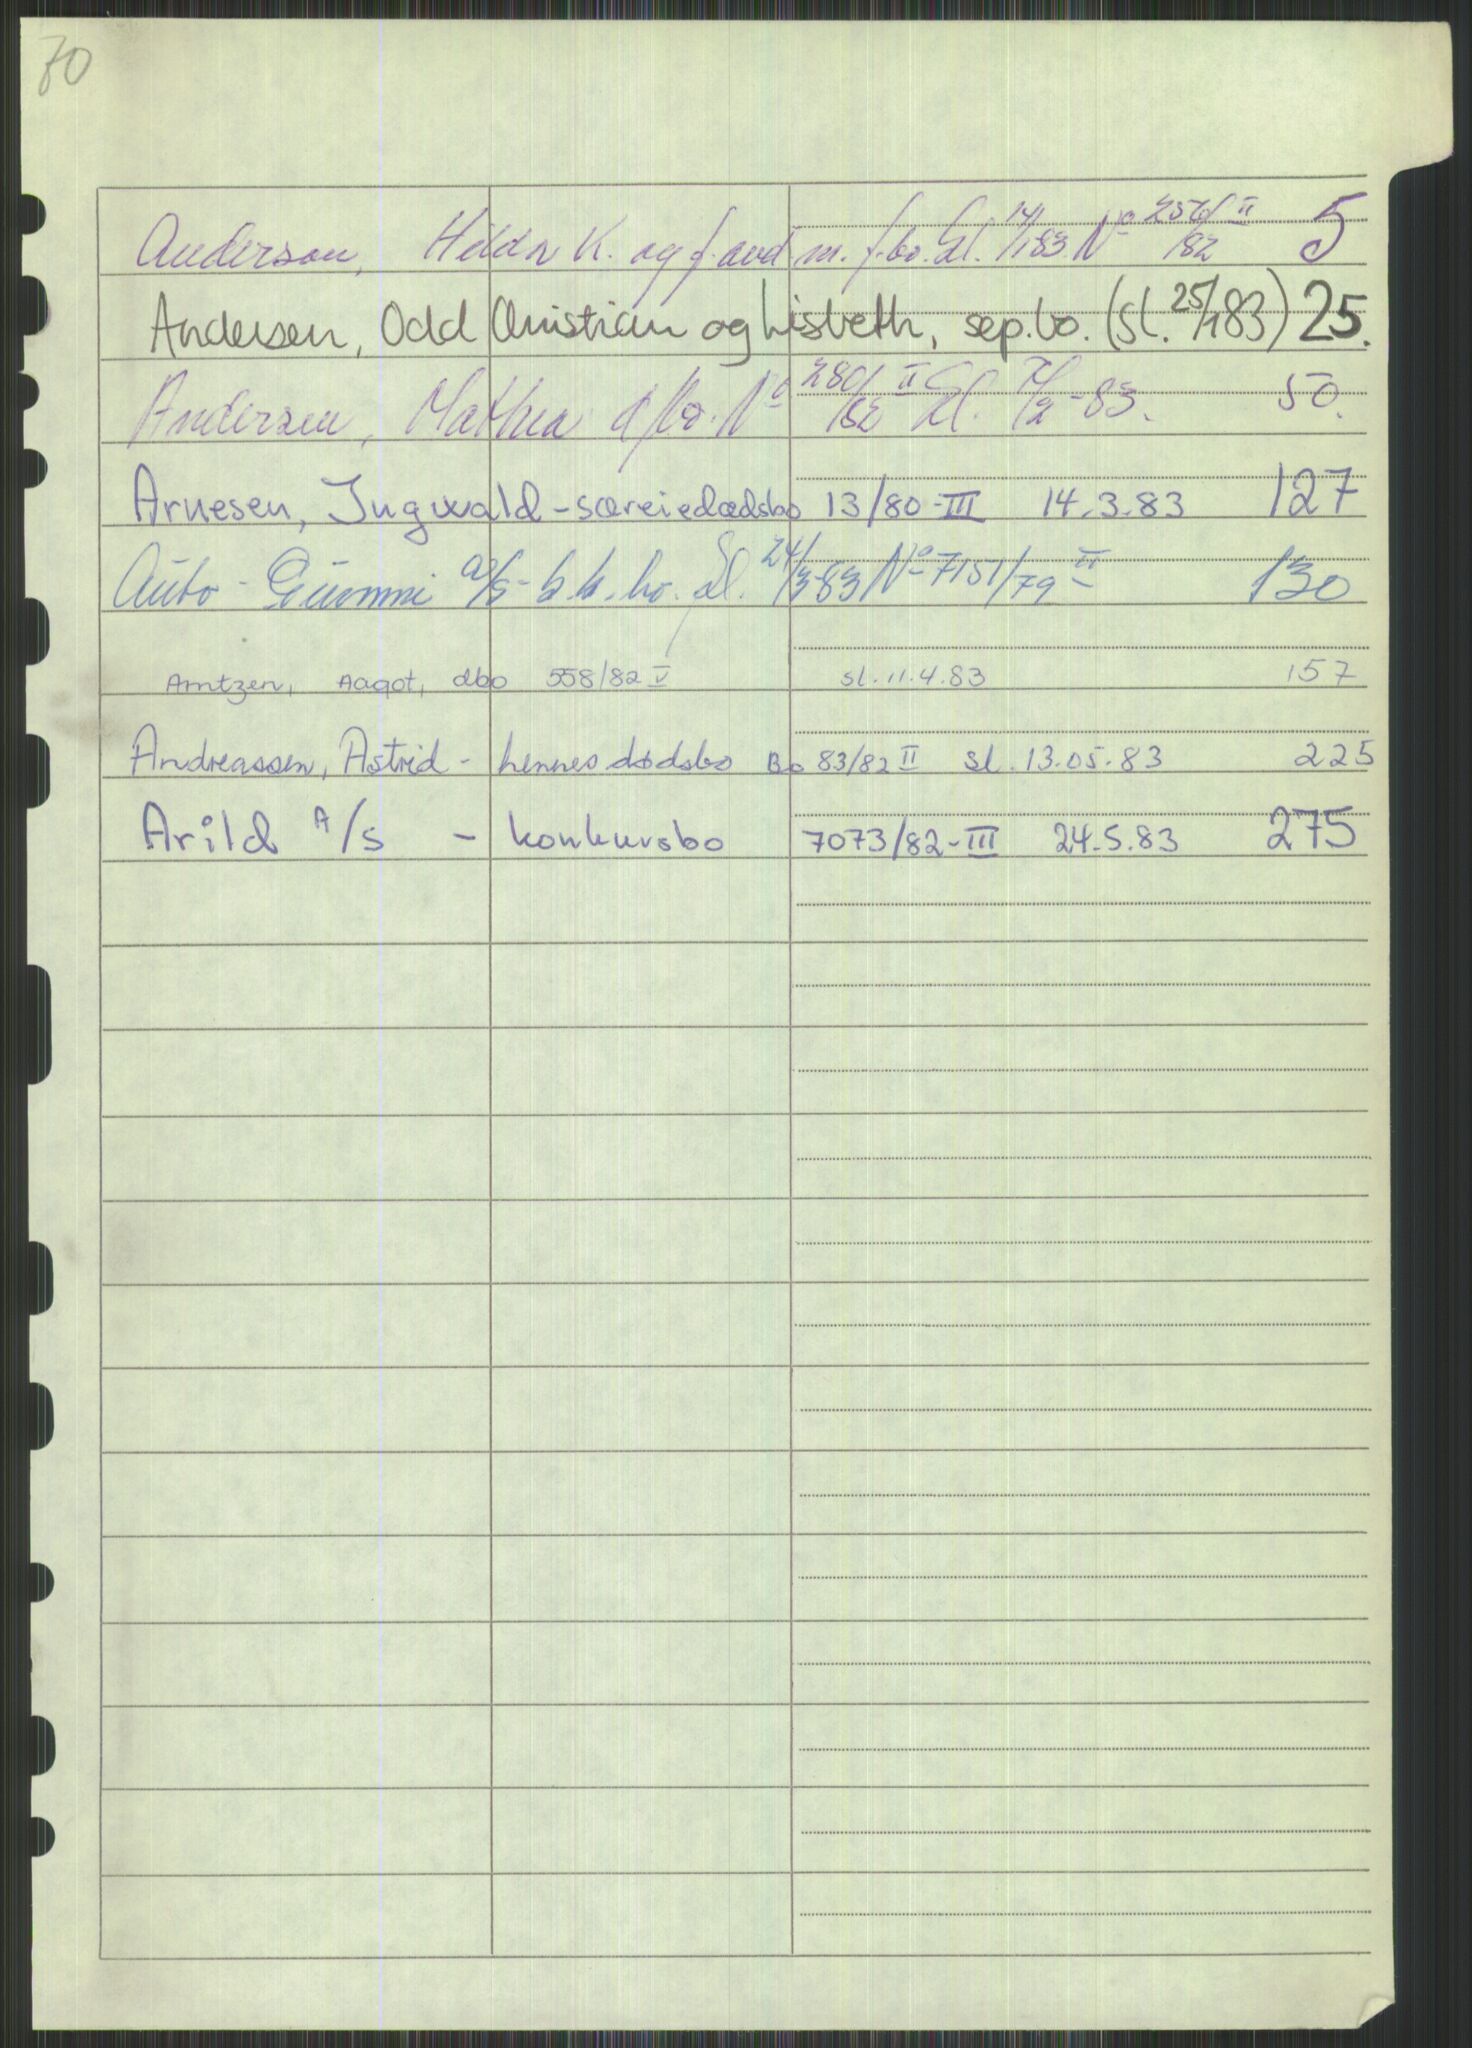 70
Anderson, Hilda K. og f. avd m. f.bo. Sl. 14/1 83 No 256/82 II 5
Andersen, Odd Christian og Lisbeth, sep.bo. (sl. 25/1 83) 25.
Andersen, Mathea d/bo. No 280/82 II Sl. 7/2-83. 50.
Arnesen, Ingwald - særeiedødsbo 13/80-III 14.3.83 127
Auto-Gummi a/s - k.k.bo. Sl. 24/3-83 No 7151/79 II 130
Arntzen, Aagot, dbo 558/82 V sl. 11.4.83 157
Andreassen, Astrid - hennes dødsbo Bo 83/82 II sl. 13.05.83 225
Arild A/S - konkursbo 7073/82-III 24.5.83 275